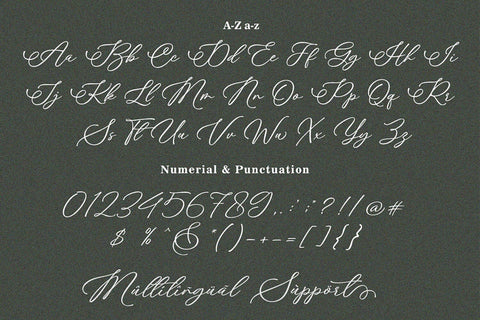 A-Z a-z
Aa Bb Cc Dd Ee Ff Gg Hh Ii
Jj Kk Ll Mm Nn Oo Pp Qq Rr
Ss Tt Uu Vv Ww Xx Yy Zz
Numerial & Punctuation
0123456789,.:;?!/@#
$ % ^ & * ( ) - + - = [ ] { }
Múltilingüàl Sùppört